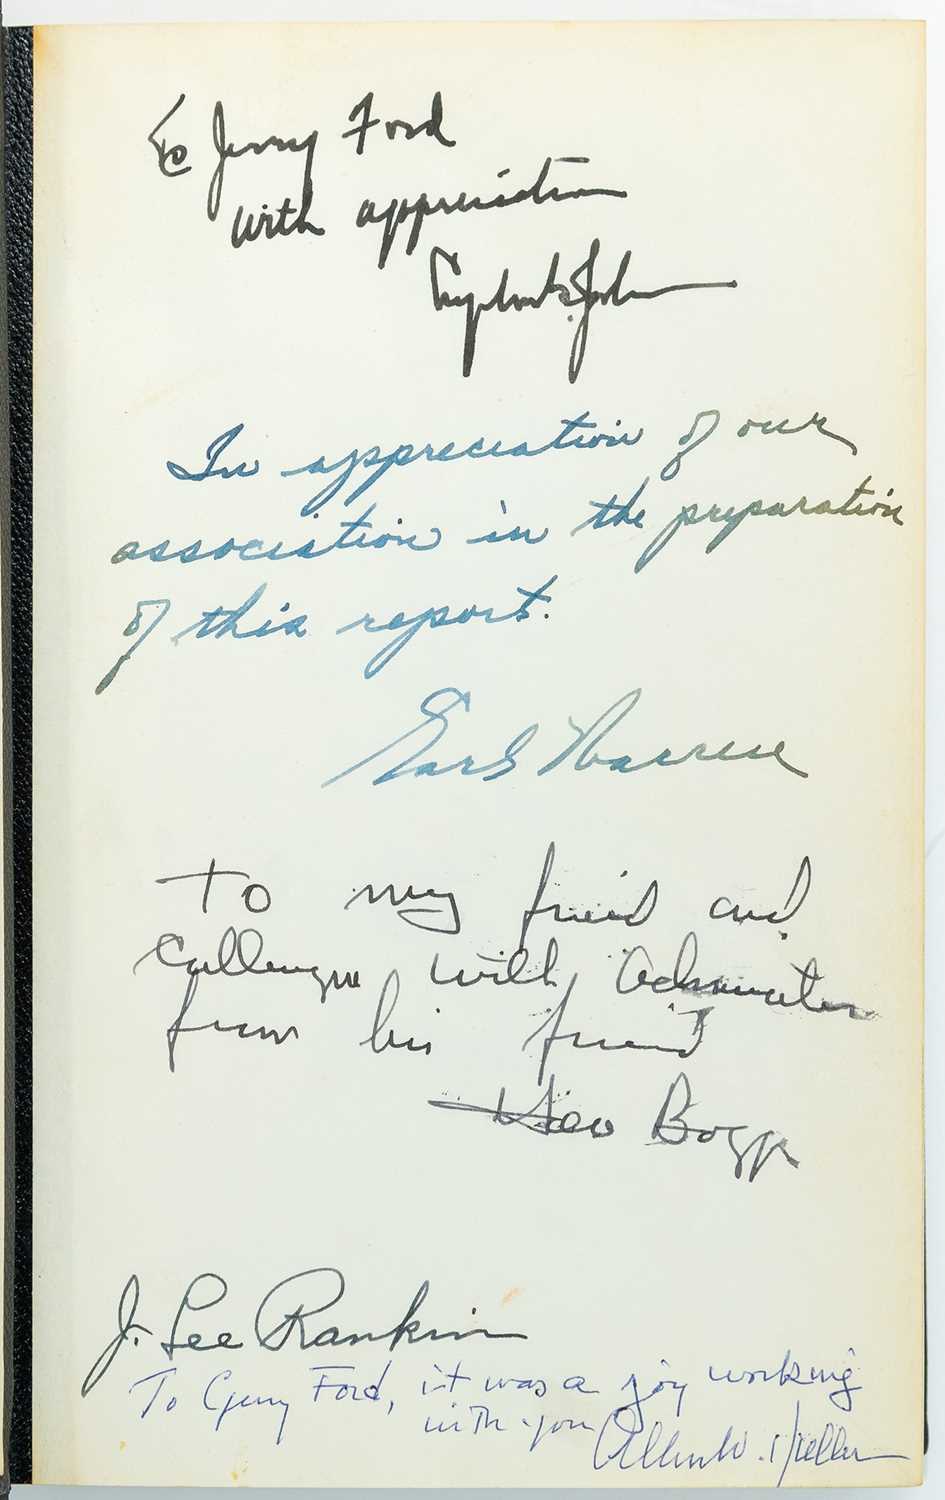 To Jerry Ford
with appreciation
Lyndon B. Johnson
In appreciation of our
association in the preparation
of this report.
Earl Warren
To my friend and
Colleague with admiration
from his friend
Hale Boggs
J. Lee Rankin
To Gerry Ford, it was a joy working
with you